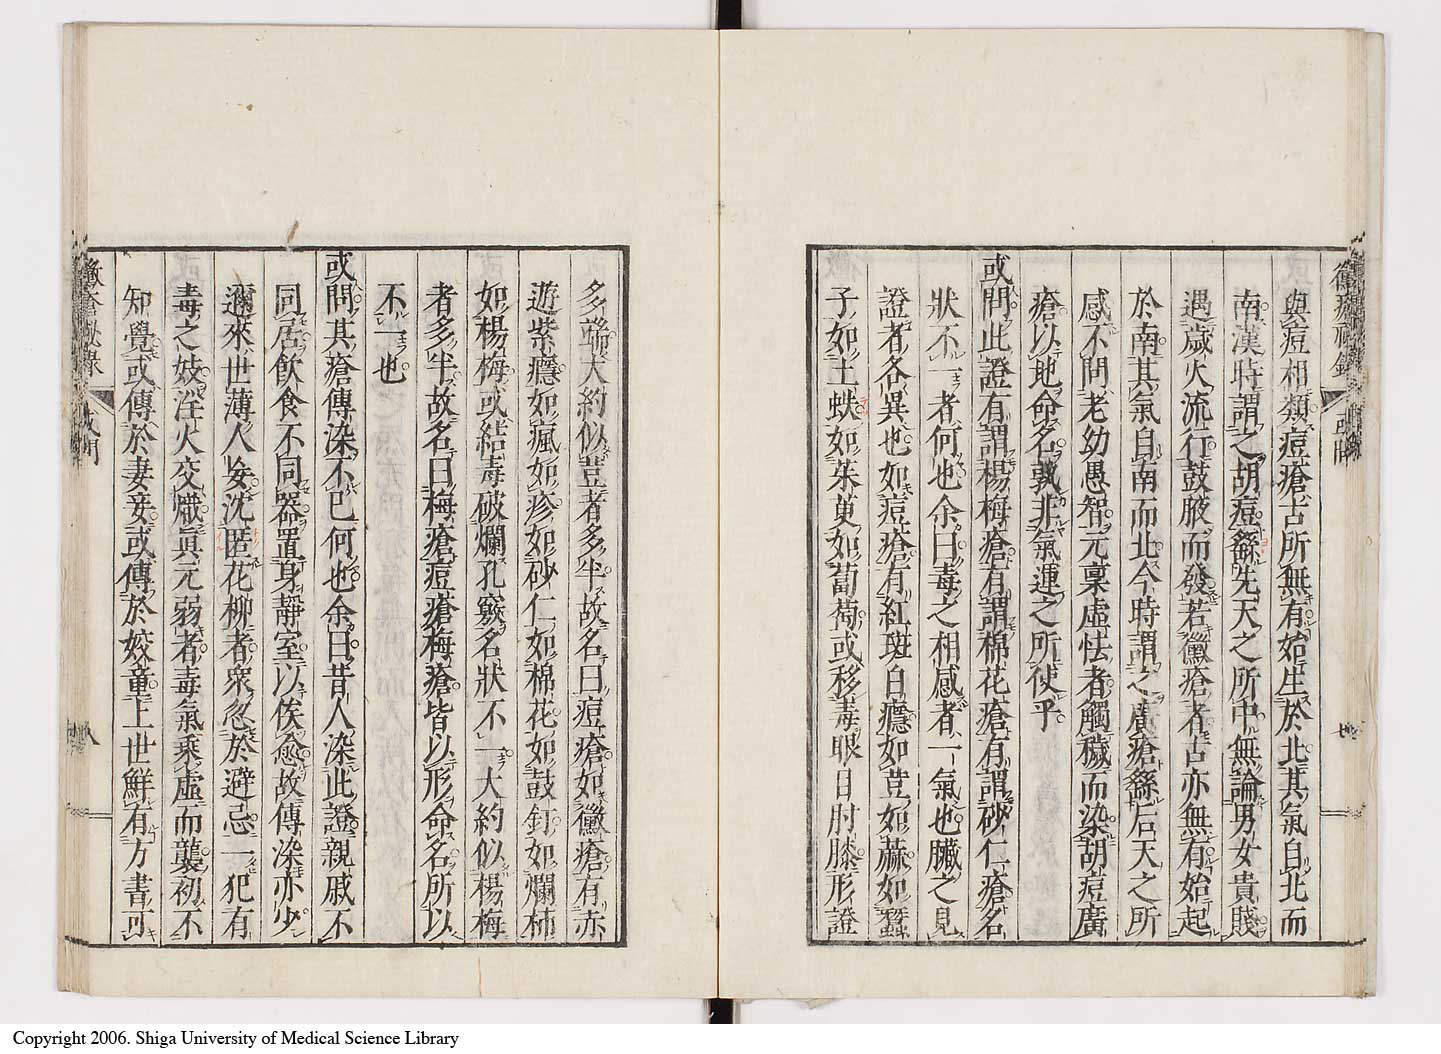 黴瘡秘錄 或問 七
與痘相類痘瘡古所無有始生於北其氣自北而
南漢時謂之胡痘繇先天之所中無論男女貴賤
遇歲火流行鼓腋而發若黴瘡者古亦無有始起
於南其氣自南而北今時謂之廣瘡繇后天之所
感不問老幼愚智元稟虛怯者觸穢而染胡痘廣
瘡以地命名孰非氣運之所使乎
或問此證有謂楊梅瘡有謂棉花瘡有謂砂仁瘡名
狀不一者何也余曰毒之相感者一氣也臟之見
證者各異也如痘瘡有紅斑白癮如荳如麻如蠶
子如土蛈如茱萸如蔔萄或移毒眼目肘膝形證
多端大約似荳者多半故名曰痘瘡如黴瘡有赤
遊紫癮如瘋如疹如砂仁如棉花如鼓釘如爛柿
如楊梅或結毒破爛孔竅名狀不一大約似楊梅
者多半故名曰梅瘡痘瘡梅瘡皆以形命名所以
不一也
或問其瘡傳染不已何也余曰昔人染此證親戚不
同居飲食不同器置身靜室以俟愈故傳染亦少
邇來世薄人妄沈匿花柳者衆忽於避忌一犯有
毒之妓淫火交熾眞元弱者毒氣乘虛而襲初不
知覺或傳於妻妾或傳於姣童上世鮮有方書可
黴瘡秘錄 或問 八
Copyright 2006. Shiga University of Medical Science Library